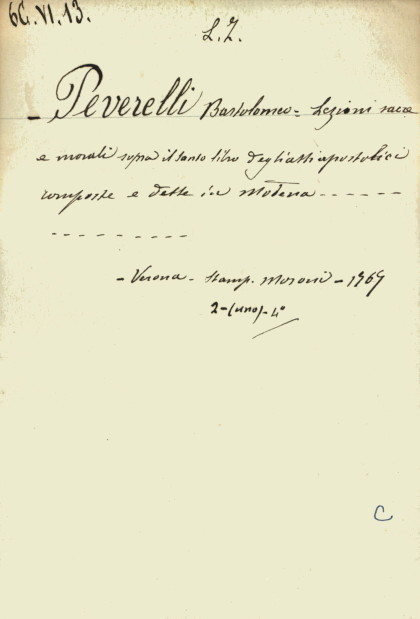 6C.VI.13.
L.Z.
- Peverelli Bartolomeo - Lezioni sacre
e morali sopra il santo libro degli atti apostolici
composte e dette in Modena - - - - - -
- - - - - - - - -
- Verona - Stamp. Moroni - 1769
2-(uno)-4°
C